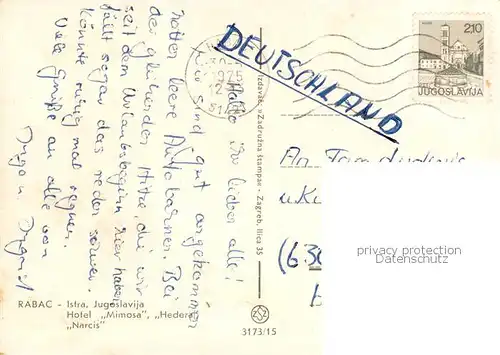 Hallo ihr lieben alle!
Hier sind gut angekommen
hatten leere Autobahnen. Bei
der glühenden Hitze, die wir
seit dem Urlaubsbeginn hier haben
fällt sogar das reden schwer.
könnte ruhig mal regnen.
Viele Grüße an alle von
Ingo u.
DEUTSCHLAND
1975
12
51
2,10
JUGOSLAVIJA
An Fam.
(630
privacy protection
AnsichtskartenLexikon.de
Izdavač: »Zadružna štampa« - Zagreb, Ilica 35
RABAC - Istra, Jugoslavija
Hotel „Mimosa", „Hedera",
„Narcis"
3173/15